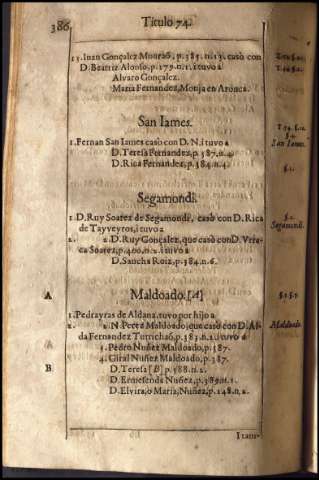 386 Titulo 74.
13. Iuan Gonçalez Mouraõ, p.385.n.13. casò con
D. Beatriz Alonso, p.179.n.1. i tuvo a
Alvaro Gonçalez.
Maria Fernandez, Monja en Arouca.
San Iames.
1. Fernan San Iames casò con D. N. i tuvo a
D. Teresa Fernandez, p.387.n.4.
D. Rica Fernandez, p.384.n.4.
San Iames.
§.1.
Segamondi.
1. D. Ruy Soarez de Segamondi, casò con D. Rica
de Tayveyros, i tuvo a
2. 2. D. Ruy Gonçalez, que casò con D. Vrra-
ca Soarez, p.400.n.2. i tuvo a
D. Sancha Roiz, p.384.n.6.
§.2.
Segamondi.
A Maldoado. [A]
1. Pedrayras de Aldana, tuvo por hijo a
2. 2. N. Perez Maldoado, que casò con D. Al-
da Fernandez Turrichaõ, p.383.n.2. i tuvo a
3. Pedro Nuñez Maldoado, p.387.
4. Giral Nuñez Maldoado, p.387.
B D. Teresa [B], p.388.n.2.
D. Ermesenda Nuñez, p.389.n.1.
D. Elvira, o Maria, Nuñez, p.148.n.2.
Maldoado.
Itam-